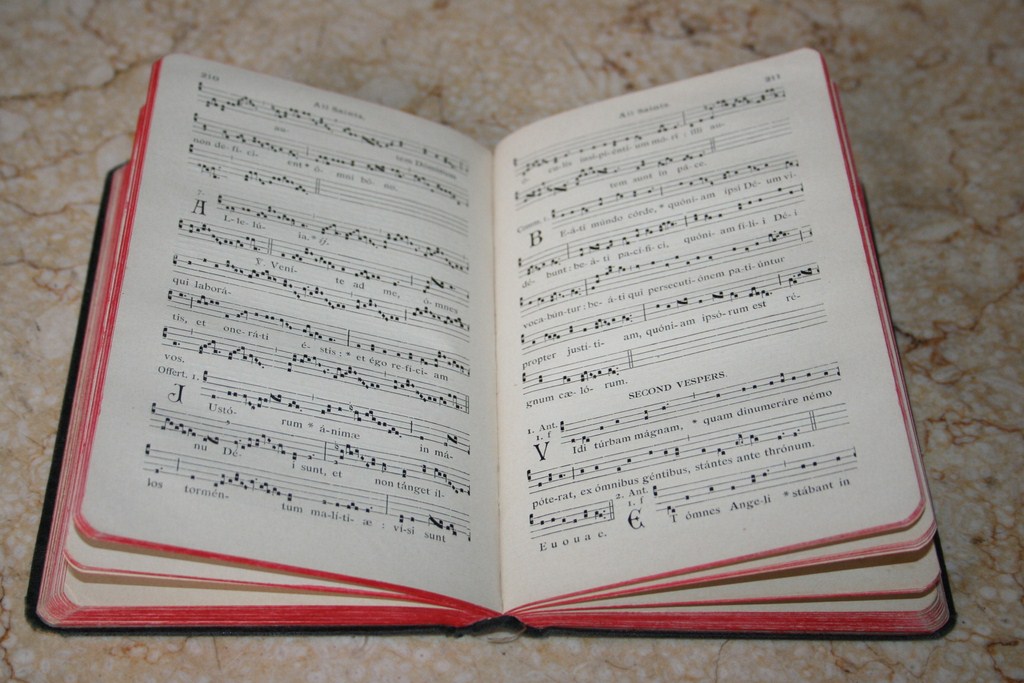 210
All Saints.
au- tem Dominum
non de-fi-ci- ent * ó- mni bó- no.
7.
A L-le- lú- ia. * ij.
℣. Vení- te ad me, ó- mnes
qui laborá-
tis, et one-rá-ti é- stis : * et égo re-fi-ci- am
vos.
Offert. 1.
J Ustó- rum * á-nimæ in má-
nu Dé- i sunt, et non tánget il-
los tormén- tum ma-lí-ti- æ : vi-si sunt
211
All Saints
ó- cu-lis insi-pi-énti-um mó-ri : illi au-
tem sunt in pá-ce.
Comm. 1.
B E-á-ti múndo córde, * quóni-am ipsi Dé-um vi-
dé- bunt : be-á-ti pa-cí-fi-ci, quóni-am fí-li-i Dé-i
vocabún-tur : be-á-ti qui persecuti-ónem pa-ti-úntur
propter justí-ti- am, quóni-am ipsó-rum est ré-
gnum cæ-ló- rum.
SECOND VESPERS.
1. Ant.
1. f
V Idi túrbam mágnam, * quam dinumeráre némo
póte-rat, ex ómnibus géntibus, stántes ante thrónum.
2. Ant.
1. f
E u o u a e.
E T ómnes Ange-li * stábant in